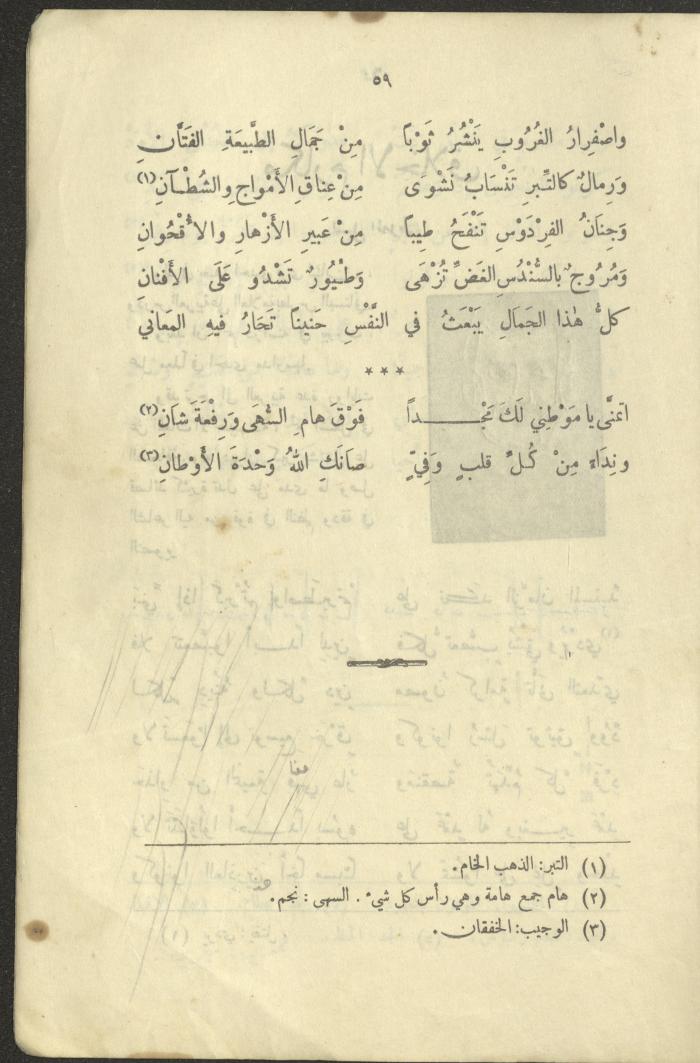 ٥٩
واصْفِرارُ الغُرُوبِ يَنْشُرُ ثَوْبًا مِنْ جَمَالِ الطَّبيعَةِ الفَتَّانِ
وَرِمالٌ كالتِّبرِ تَنْسَابُ نَشْوَى مِنْ عِناقِ الأَمْواجِ والشُطْـآنِ(١)
وَجِنَانُ الفِرْدَوْسِ تَنْفَحُ طِيبًا مِنْ عَبيرِ الأَزْهارِ والأُقْحُوانِ
وَمُرُوجٌ بالسُّنْدُسِ الغَضِّ تُزْهَى وَطُيُورٌ تَشْدُو عَلَى الأَفْنانِ
كلُّ هٰذا الجَمَالِ يَبْعَثُ في النَّفْسِ حَنينًا تَحَارُ فيهِ المَعَاني
***
اتمنَّى يا مَوْطِنِي لَكَ مَجْــــداً فَوْقَ هامِ السُّهَى وَرِفْعَةَ شَانِ(٢)
ونِدَاءً مِنْ كُلِّ قلبٍ وَفِيٍّ صَانَكِ اللهُ وَحْدَةَ الأَوْطانِ(٣)
(١) التبر: الذهب الخام.
(٢) هام جمع هامة وهي رأس كل شيء . السهى : نجم.
(٣) الوجيب: الخفقان.